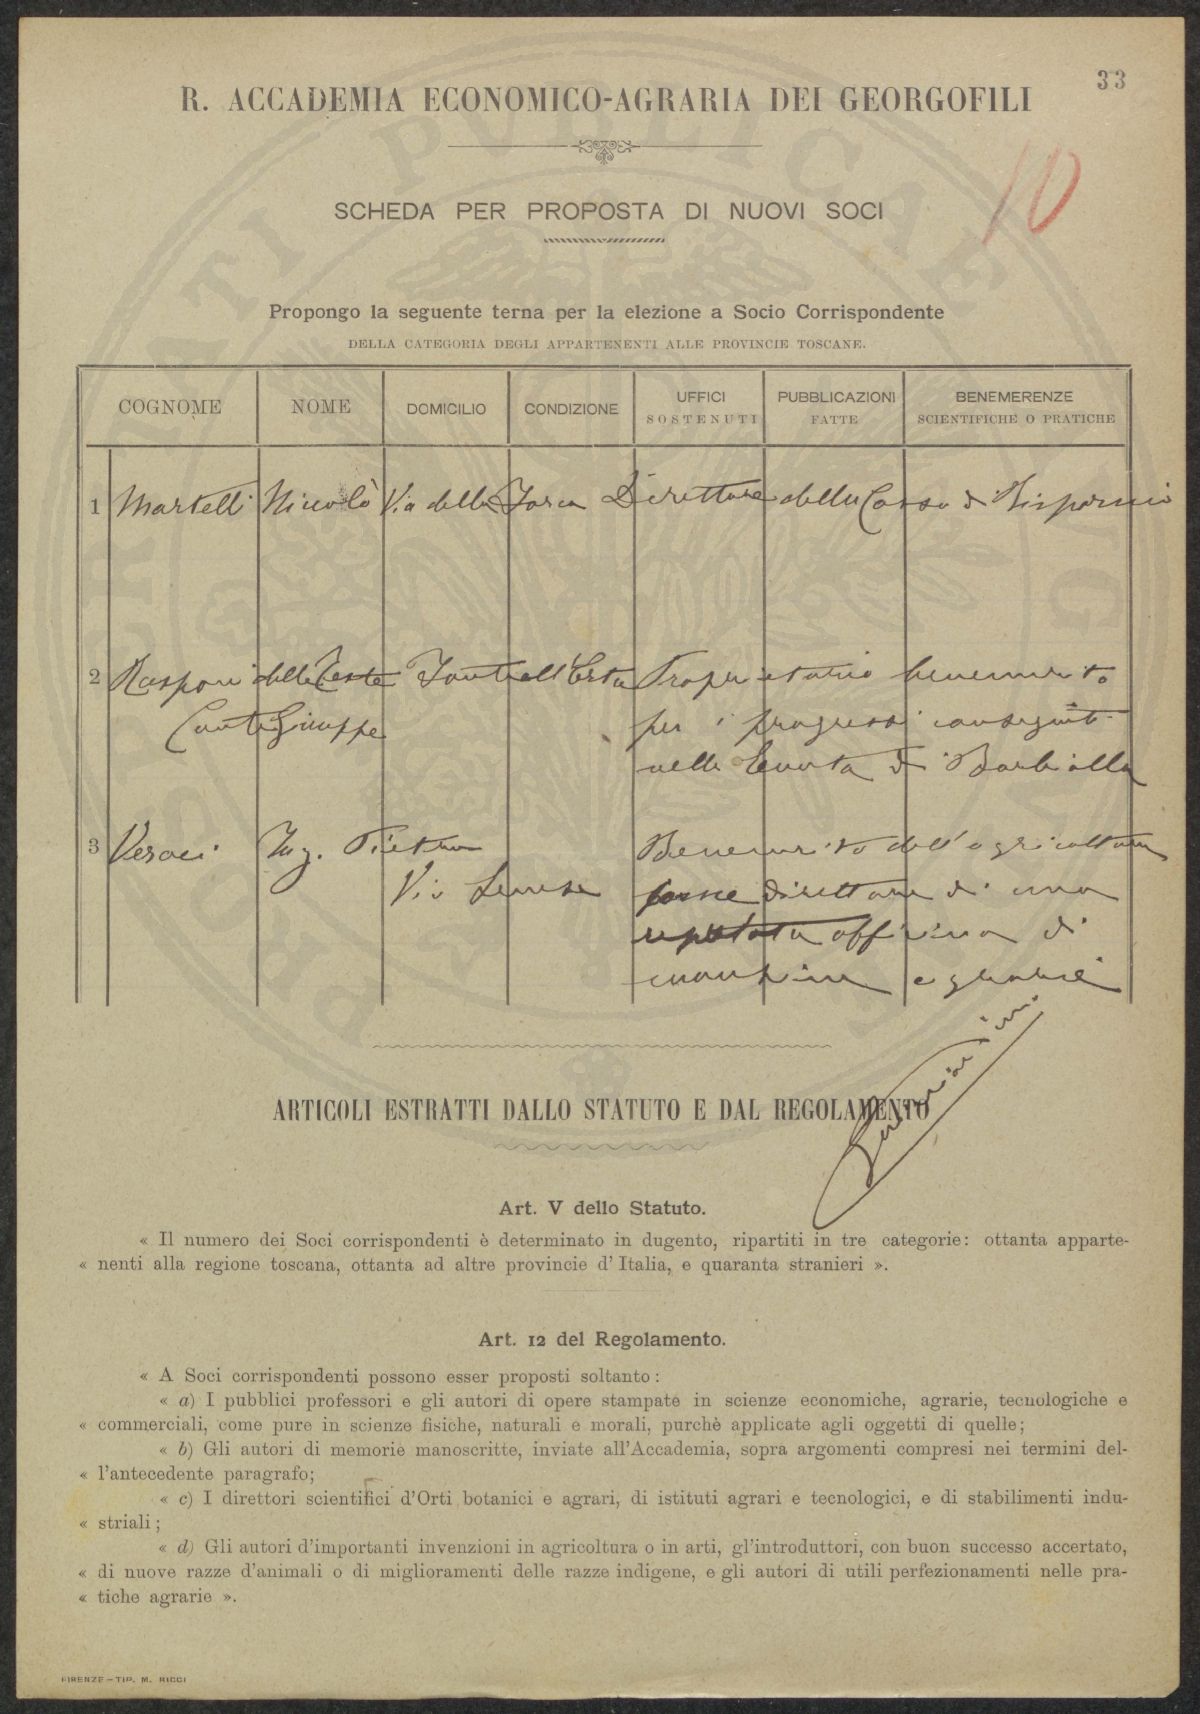 33
R. ACCADEMIA ECONOMICO-AGRARIA DEI GEORGOFILI
10
SCHEDA PER PROPOSTA DI NUOVI SOCI
Propongo la seguente terna per la elezione a Socio Corrispondente
DELLA CATEGORIA DEGLI APPARTENENTI ALLE PROVINCIE TOSCANE.
COGNOME NOME DOMICILIO CONDIZIONE UFFICI SOSTENUTI PUBBLICAZIONI FATTE BENEMERENZE SCIENTIFICHE O PRATICHE
1 Martelli Niccolò Via della Forca Direttore della Cassa di Risparmio
2 Rasponi delle Teste Fonteall'Erta Proprietario benemerito
Conte Giuseppe per i progressi conseguiti
nella tenuta di Barbialla
3 Veraci Ing. Pietro Benemerito dell'agricoltura
Via direttore di una
officina di
macchine agrarie
ARTICOLI ESTRATTI DALLO STATUTO E DAL REGOLAMENTO
Art. V dello Statuto.
« Il numero dei Soci corrispondenti è determinato in dugento, ripartiti in tre categorie: ottanta apparte-
« nenti alla regione toscana, ottanta ad altre provincie d'Italia, e quaranta stranieri ».
Art. 12 del Regolamento.
« A Soci corrispondenti possono esser proposti soltanto :
« a) I pubblici professori e gli autori di opere stampate in scienze economiche, agrarie, tecnologiche e
« commerciali, come pure in scienze fisiche, naturali e morali, purchè applicate agli oggetti di quelle;
« b) Gli autori di memorie manoscritte, inviate all'Accademia, sopra argomenti compresi nei termini del-
« l'antecedente paragrafo;
« c) I direttori scientifici d'Orti botanici e agrari, di istituti agrari e tecnologici, e di stabilimenti indu-
« striali ;
« d) Gli autori d'importanti invenzioni in agricoltura o in arti, gl'introduttori, con buon successo accertato,
« di nuove razze d'animali o di miglioramenti delle razze indigene, e gli autori di utili perfezionamenti nelle pra-
« tiche agrarie ».
FIRENZE – TIP. M. RICCI